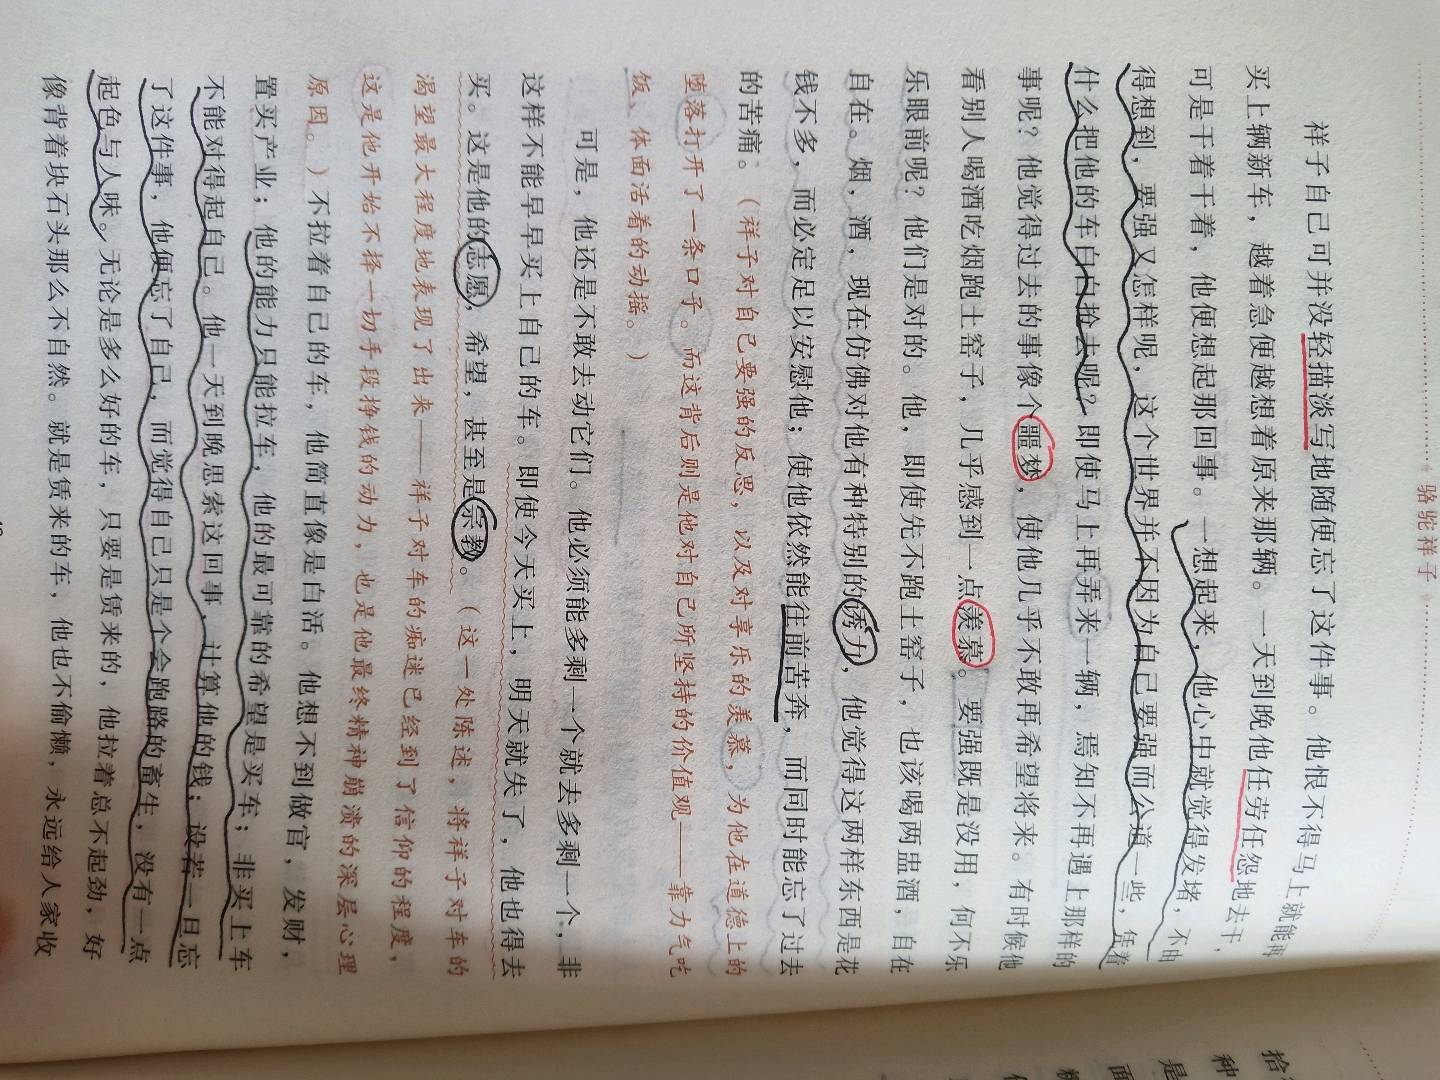 骆驼祥子
祥子自己可并没轻描淡写地随便忘了这件事。他恨不得马上就能再
买上辆新车，越着急便越想着原来那辆。一天到晚他任劳任怨地去干，
可是干着干着，他便想起那回事。一想起来，他心中就觉得发堵，不由
得想到，要强又怎样呢，这个世界并不因为自己要强而公道一些，凭着
什么把他的车白白抢去呢？即使马上再弄来一辆，焉知不再遇上那样的
事呢？他觉得过去的事像个噩梦，使他几乎不敢再希望将来。有时候他
看别人喝酒吃烟跑土窑子，几乎感到一点羡慕。要强既是没用，何不乐
乐眼前呢？他们是对的。他，即使先不跑土窑子，也该喝两盅酒，自在
自在。烟，酒，现在仿佛对他有种特别的诱力，他觉得这两样东西是花
钱不多，而必定足以安慰他；使他依然能往前苦奔，而同时能忘了过去
的苦痛。（祥子对自己要强的反思，以及对享乐的羡慕，为他在道德上的
堕落打开了一条口子。而这背后则是他对自己所坚持的价值观——靠力气吃
饭、体面活着的动摇。）
可是，他还是不敢去动它们。他必须能多剩一个就去多剩一个，非
这样不能早早买上自己的车。即使今天买上，明天就丢了，他也得去
买。这是他的志愿，希望，甚至是宗教。（这一处陈述，将祥子对车的
渴望最大程度地表现了出来——祥子对车的痴迷已经到了信仰的程度，
这是他开始不择一切手段挣钱的动力，也是他最终精神崩溃的深层心理
原因。）不拉着自己的车，他简直像是白活。他想不到做官，发财，
置买产业；他的能力只能拉车，他的最可靠的希望是买车；非买上车
不能对得起自己。他一天到晚思索这回事，计算他的钱；设若一旦忘
了这件事，他便忘了自己，而觉得自己只是个会跑路的畜生，没有一点
起色与人味。无论是多么好的车，只要是赁来的，他拉着总不起劲，好
像背着块石头那么不自然。就是赁来的车，他也不偷懒，永远给人家收